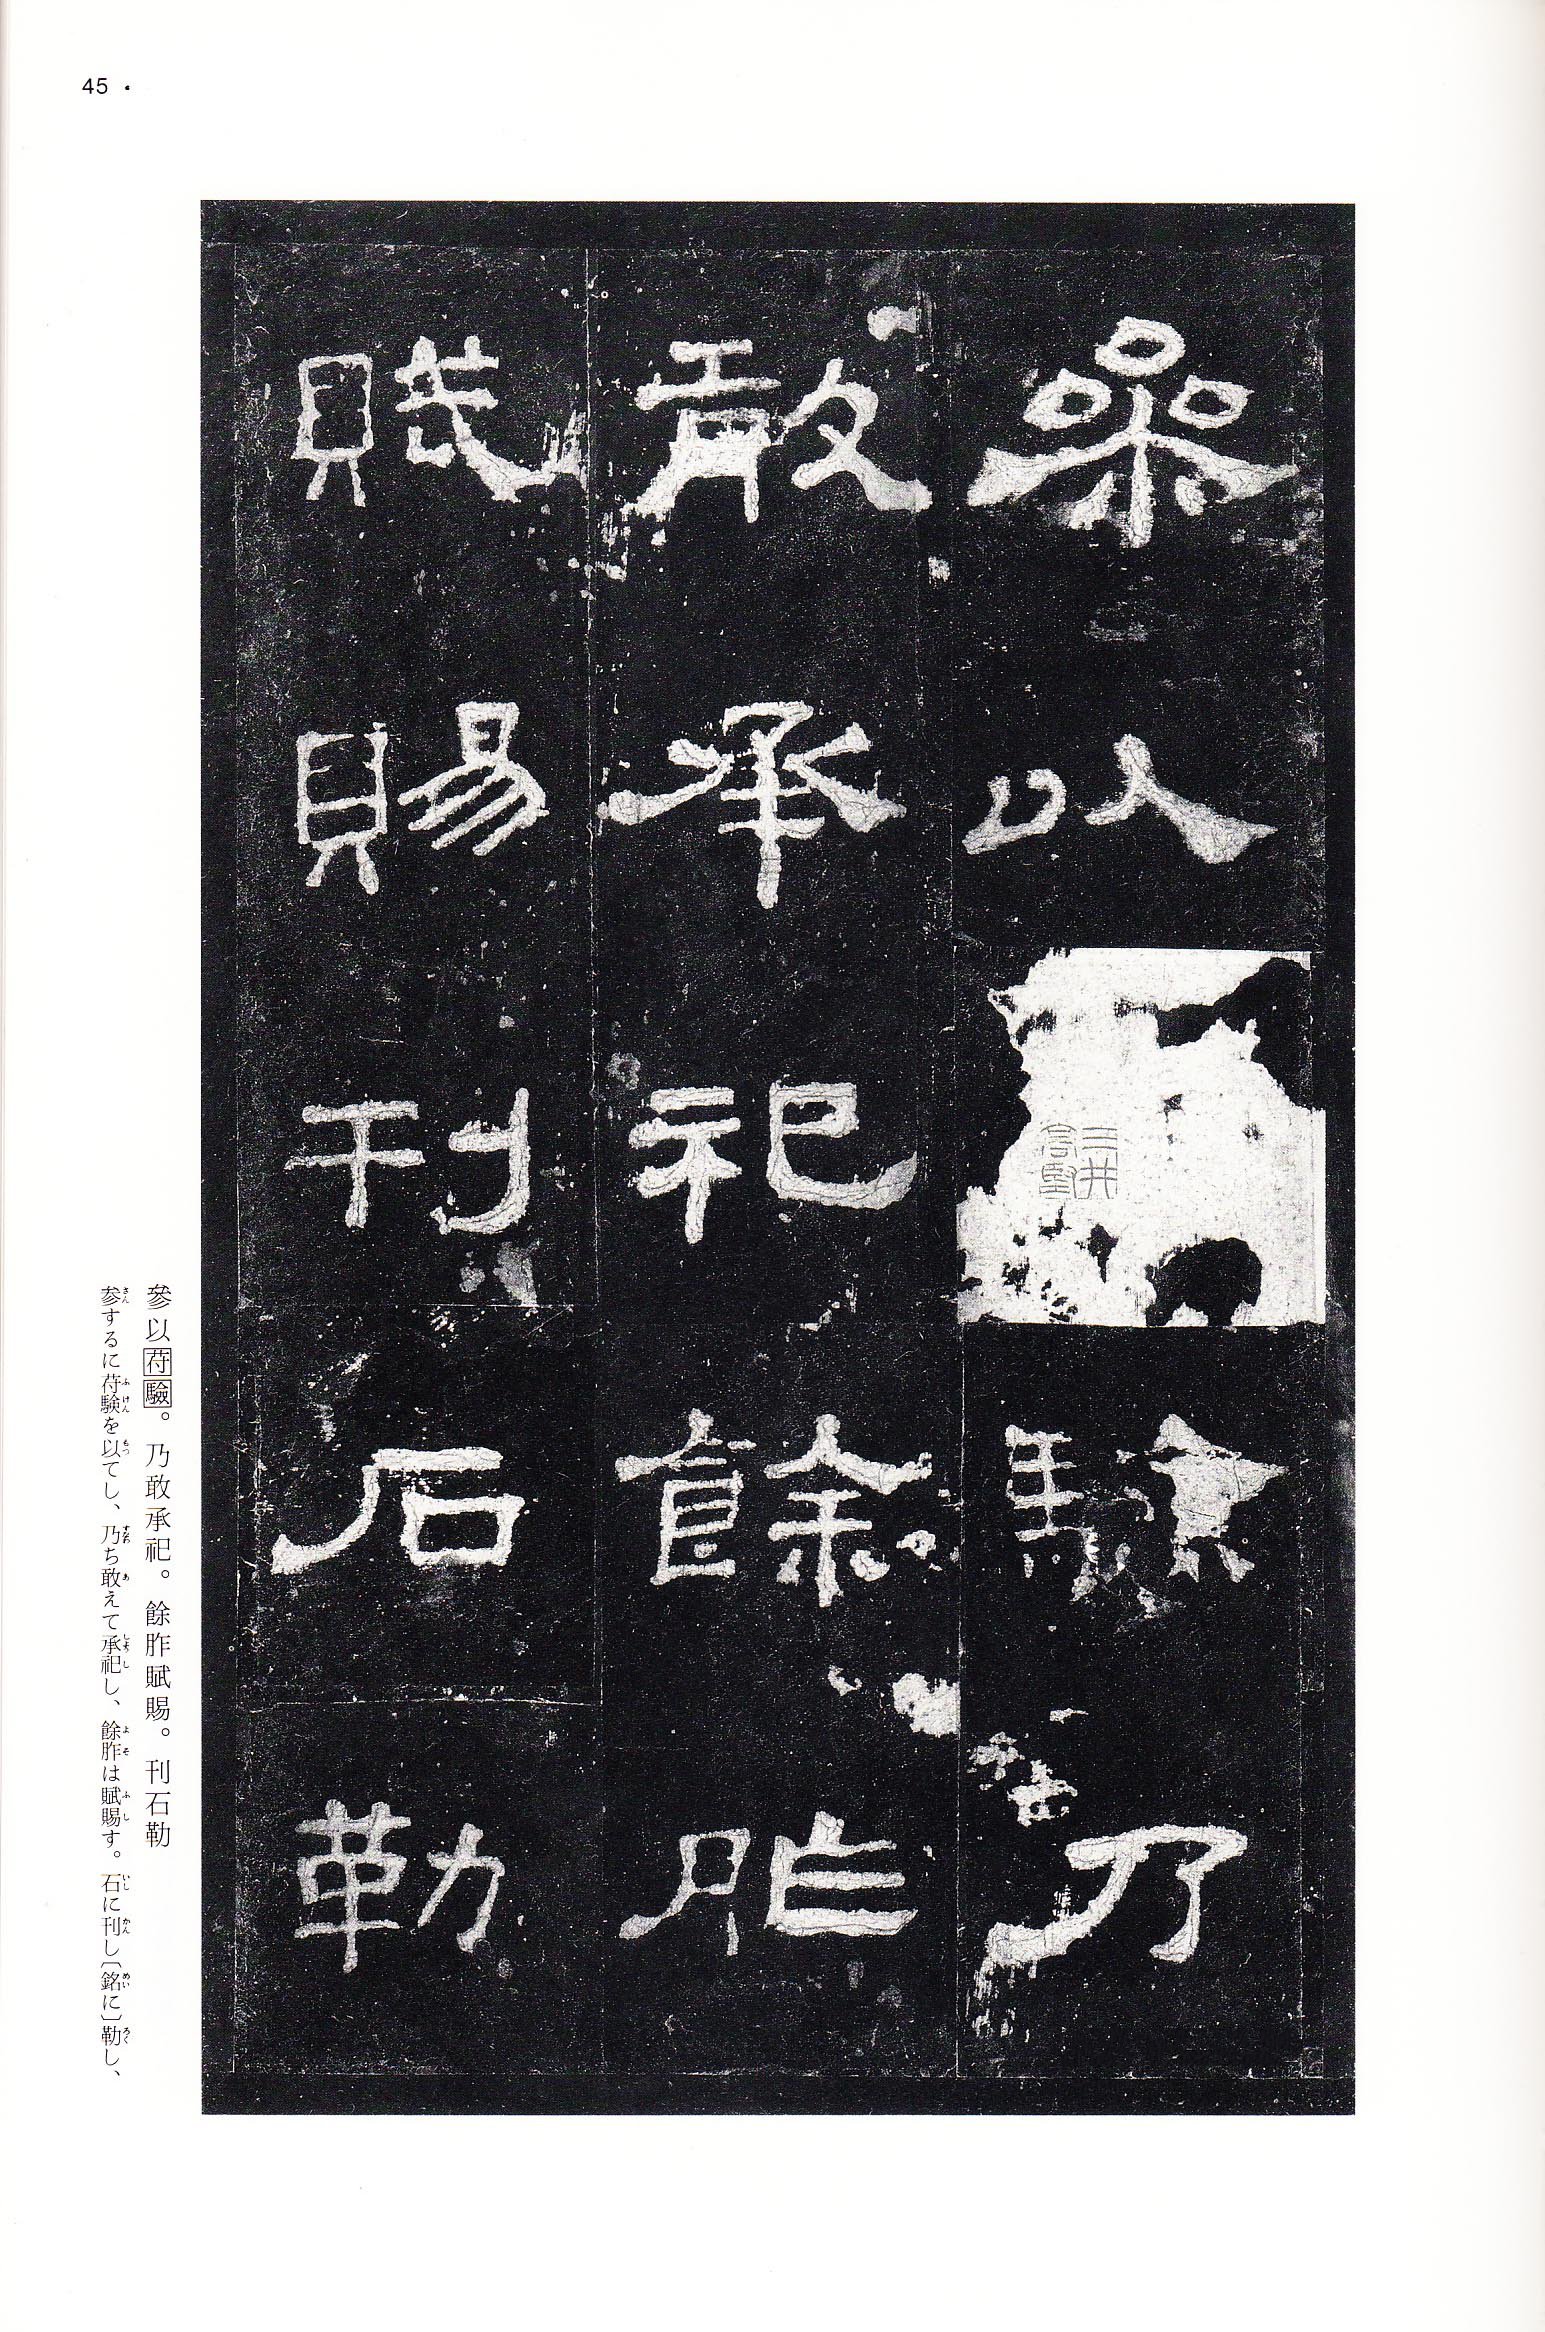 45
參以
驗乃
敢承祀餘胙
賦賜刊石勒
參以荷驗。乃敢承祀。餘胙賦賜。刊石勒
参するに荷験を以てし、乃ち敢えて承祀し、餘胙は賦賜す。石に刊し〔銘に〕勒し、